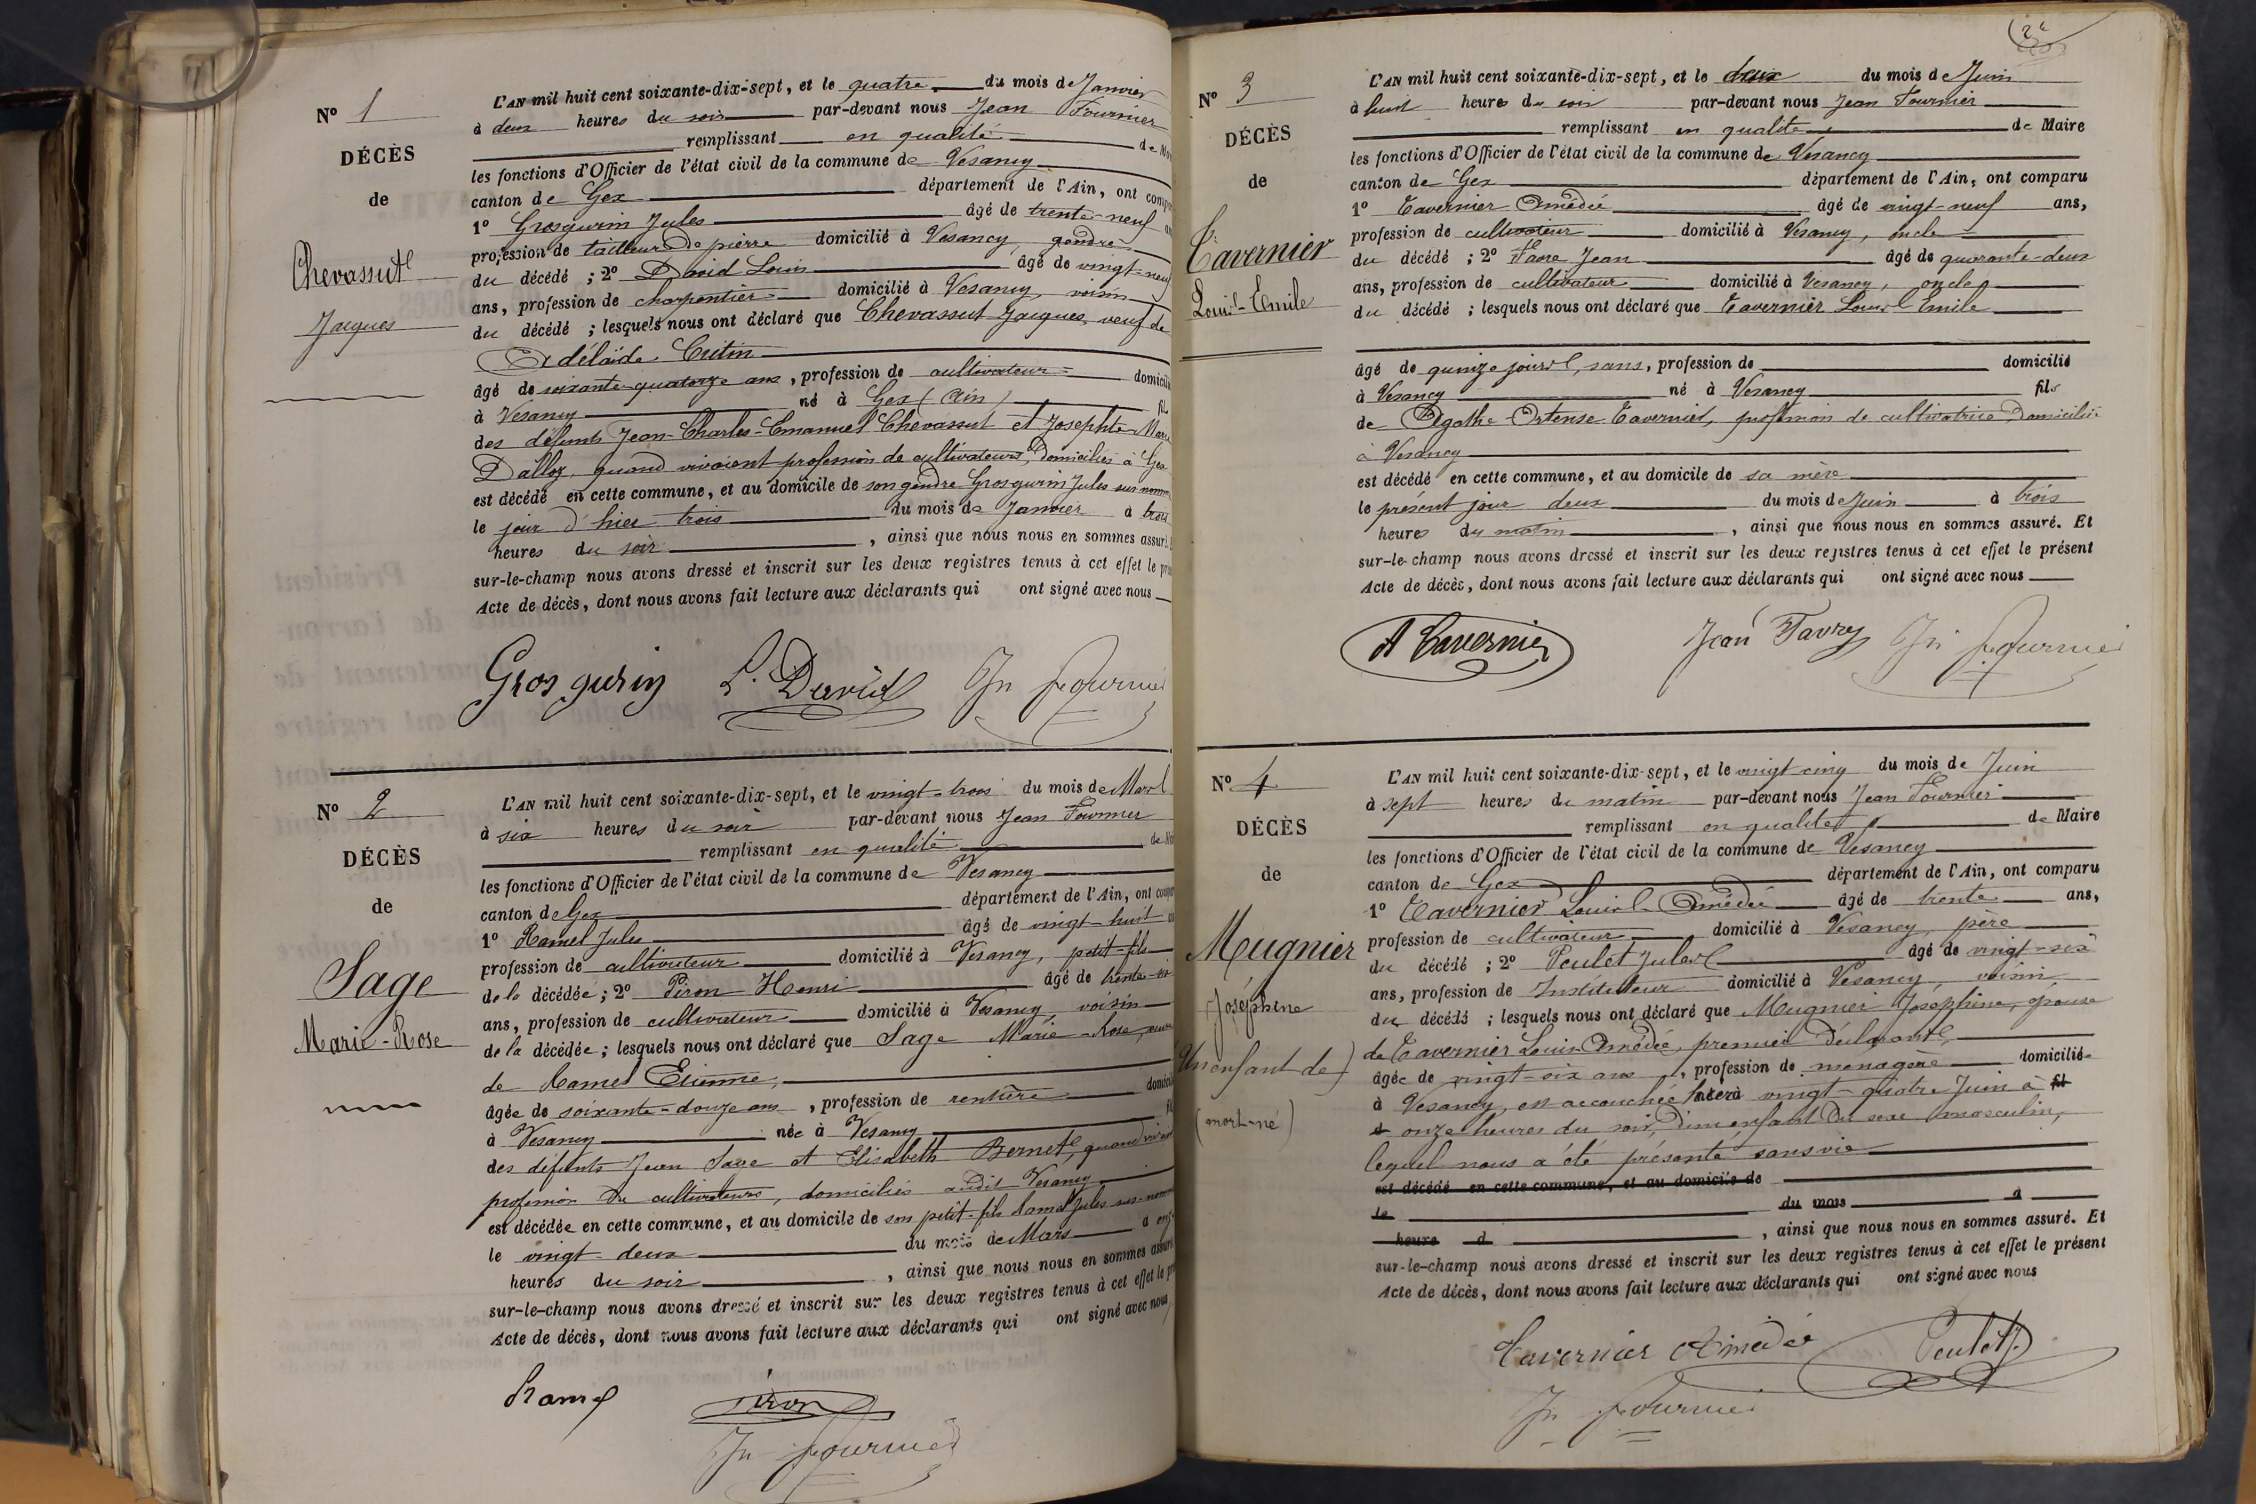 Nº 1
DÉCÈS
de
Chevassut
Jacques
L'AN mil huit cent soixante-dix-sept, et le quatre du mois de Janvier
à deux heures du soir par-devant nous Jean Fournier
remplissant en qualité de
les fonctions d'Officier de l'état civil de la commune de Vesancy
canton de Gex département de l'Ain, ont
1º Grosgurin Jules âgé de trente-neuf
profession de tailleur de pierre domicilié à Vesancy, gendre
du décédé ; 2º David Louis âgé de vingt-neuf
ans, profession de charpentier domicilié à Vesancy, voisin
du décédé ; lesquels nous ont déclaré que Chevassut Jacques, veuf de
Adélaïde Critin
âgé de soixante-quatorze ans, profession de cultivateur
à Vesancy né à Gex (Ain)
des défunts Jean-Charles-Emanuel Chevassut et Josephte-Marie
Dalloz, quand vivaient profession de cultivateurs, domiciliés à Gex
est décédé en cette commune, et au domicile de son gendre Grosgurin Jules
le jour d'hier trois du mois de Janvier à trois
heures du soir, ainsi que nous nous en sommes assuré.
sur-le-champ nous avons dressé et inscrit sur les deux registres tenus à cet effet le
Acte de décès, dont nous avons fait lecture aux déclarants qui ont signé avec nous
Grosgurin L. David Jn Fournier
Nº 2
DÉCÈS
de
Sage
Marie-Rose
L'AN mil huit cent soixante-dix-sept, et le vingt-trois du mois de Mars
à six heures du soir par-devant nous Jean Fournier
remplissant en qualité de
les fonctions d'Officier de l'état civil de la commune de Vesancy
canton de Gex département de l'Ain, ont
1º Ramel Jules âgé de vingt-huit
profession de cultivateur domicilié à Vesancy, petit-fils
de la décédée ; 2º Piron Henri âgé de trente-six
ans, profession de cultivateur domicilié à Vesancy, voisin
de la décédée ; lesquels nous ont déclaré que Sage Marie-Rose, veuve
de Ramel Etienne,
âgée de soixante-douze ans, profession de rentière
à Vesancy née à Vesancy
des défunts Jean Sage et Elisabeth Bernet, quand
profession de cultivateurs, domiciliés audit Vesancy
est décédée en cette commune, et au domicile de son petit-fils Ramel Jules
le vingt-deux du mois de Mars à
heures du soir, ainsi que nous nous en sommes assuré
sur-le-champ nous avons dressé et inscrit sur les deux registres tenus à cet effet le
Acte de décès, dont nous avons fait lecture aux déclarants qui ont signé avec nous
Ramel Piron
Jn Fournier
2e
Nº 3
DÉCÈS
de
Tavernier
Louis-Emile
L'AN mil huit cent soixante-dix-sept, et le deux du mois de Juin
à huit heures du soir par-devant nous Jean Fournier
remplissant en qualité de Maire
les fonctions d'Officier de l'état civil de la commune de Vesancy
canton de Gex département de l'Ain, ont comparu
1º Tavernier Amédée âgé de vingt-neuf ans,
profession de cultivateur domicilié à Vesancy, oncle
du décédé ; 2º Favre Jean âgé de quarante-deux
ans, profession de cultivateur domicilié à Vesancy, oncle
du décédé ; lesquels nous ont déclaré que Tavernier Louis Emile
âgé de quinze jours, sans, profession de domicilié
à Vesancy né à Vesancy fils
de Agathe-Ortense Tavernier, profession de cultivatrice, domiciliée
à Vesancy
est décédé en cette commune, et au domicile de sa mère
le présent jour deux du mois de Juin à trois
heures du matin, ainsi que nous nous en sommes assuré. Et
sur-le-champ nous avons dressé et inscrit sur les deux registres tenus à cet effet le présent
Acte de décès, dont nous avons fait lecture aux déclarants qui ont signé avec nous
A Tavernier Jean Favre Jn Fournier
Nº 4
DÉCÈS
de
Mugnier
Joséphine
(Un enfant de)
(mort-né)
L'AN mil huit cent soixante-dix-sept, et le vingt-cinq du mois de Juin
à sept heures du matin par-devant nous Jean Fournier
remplissant en qualité de Maire
les fonctions d'Officier de l'état civil de la commune de Vesancy
canton de Gex département de l'Ain, ont comparu
1º Tavernier Louis-Amédée âgé de trente ans,
profession de cultivateur domicilié à Vesancy, père
du décédé ; 2º Peulet Jules âgé de vingt-six
ans, profession de Instituteur domicilié à Vesancy voisin
du décédé ; lesquels nous ont déclaré que Mugnier Joséphine, épouse
de Tavernier Louis-Amédée, premier déclarant,
âgée de vingt-six ans, profession de menagère domiciliée
à Vesancy, est accouchée hier vingt-quatre Juin à
onze heures du soir, d'un enfant du sexe masculin,
lequel nous a été présenté sans vie
est décédé en cette commune, et au domicile de
le du mois à
heure d, ainsi que nous nous en sommes assuré. Et
sur-le-champ nous avons dressé et inscrit sur les deux registres tenus à cet effet le présent
Acte de décès, dont nous avons fait lecture aux déclarants qui ont signé avec nous
Tavernier Amédée Peulet J.
Jn Fournier